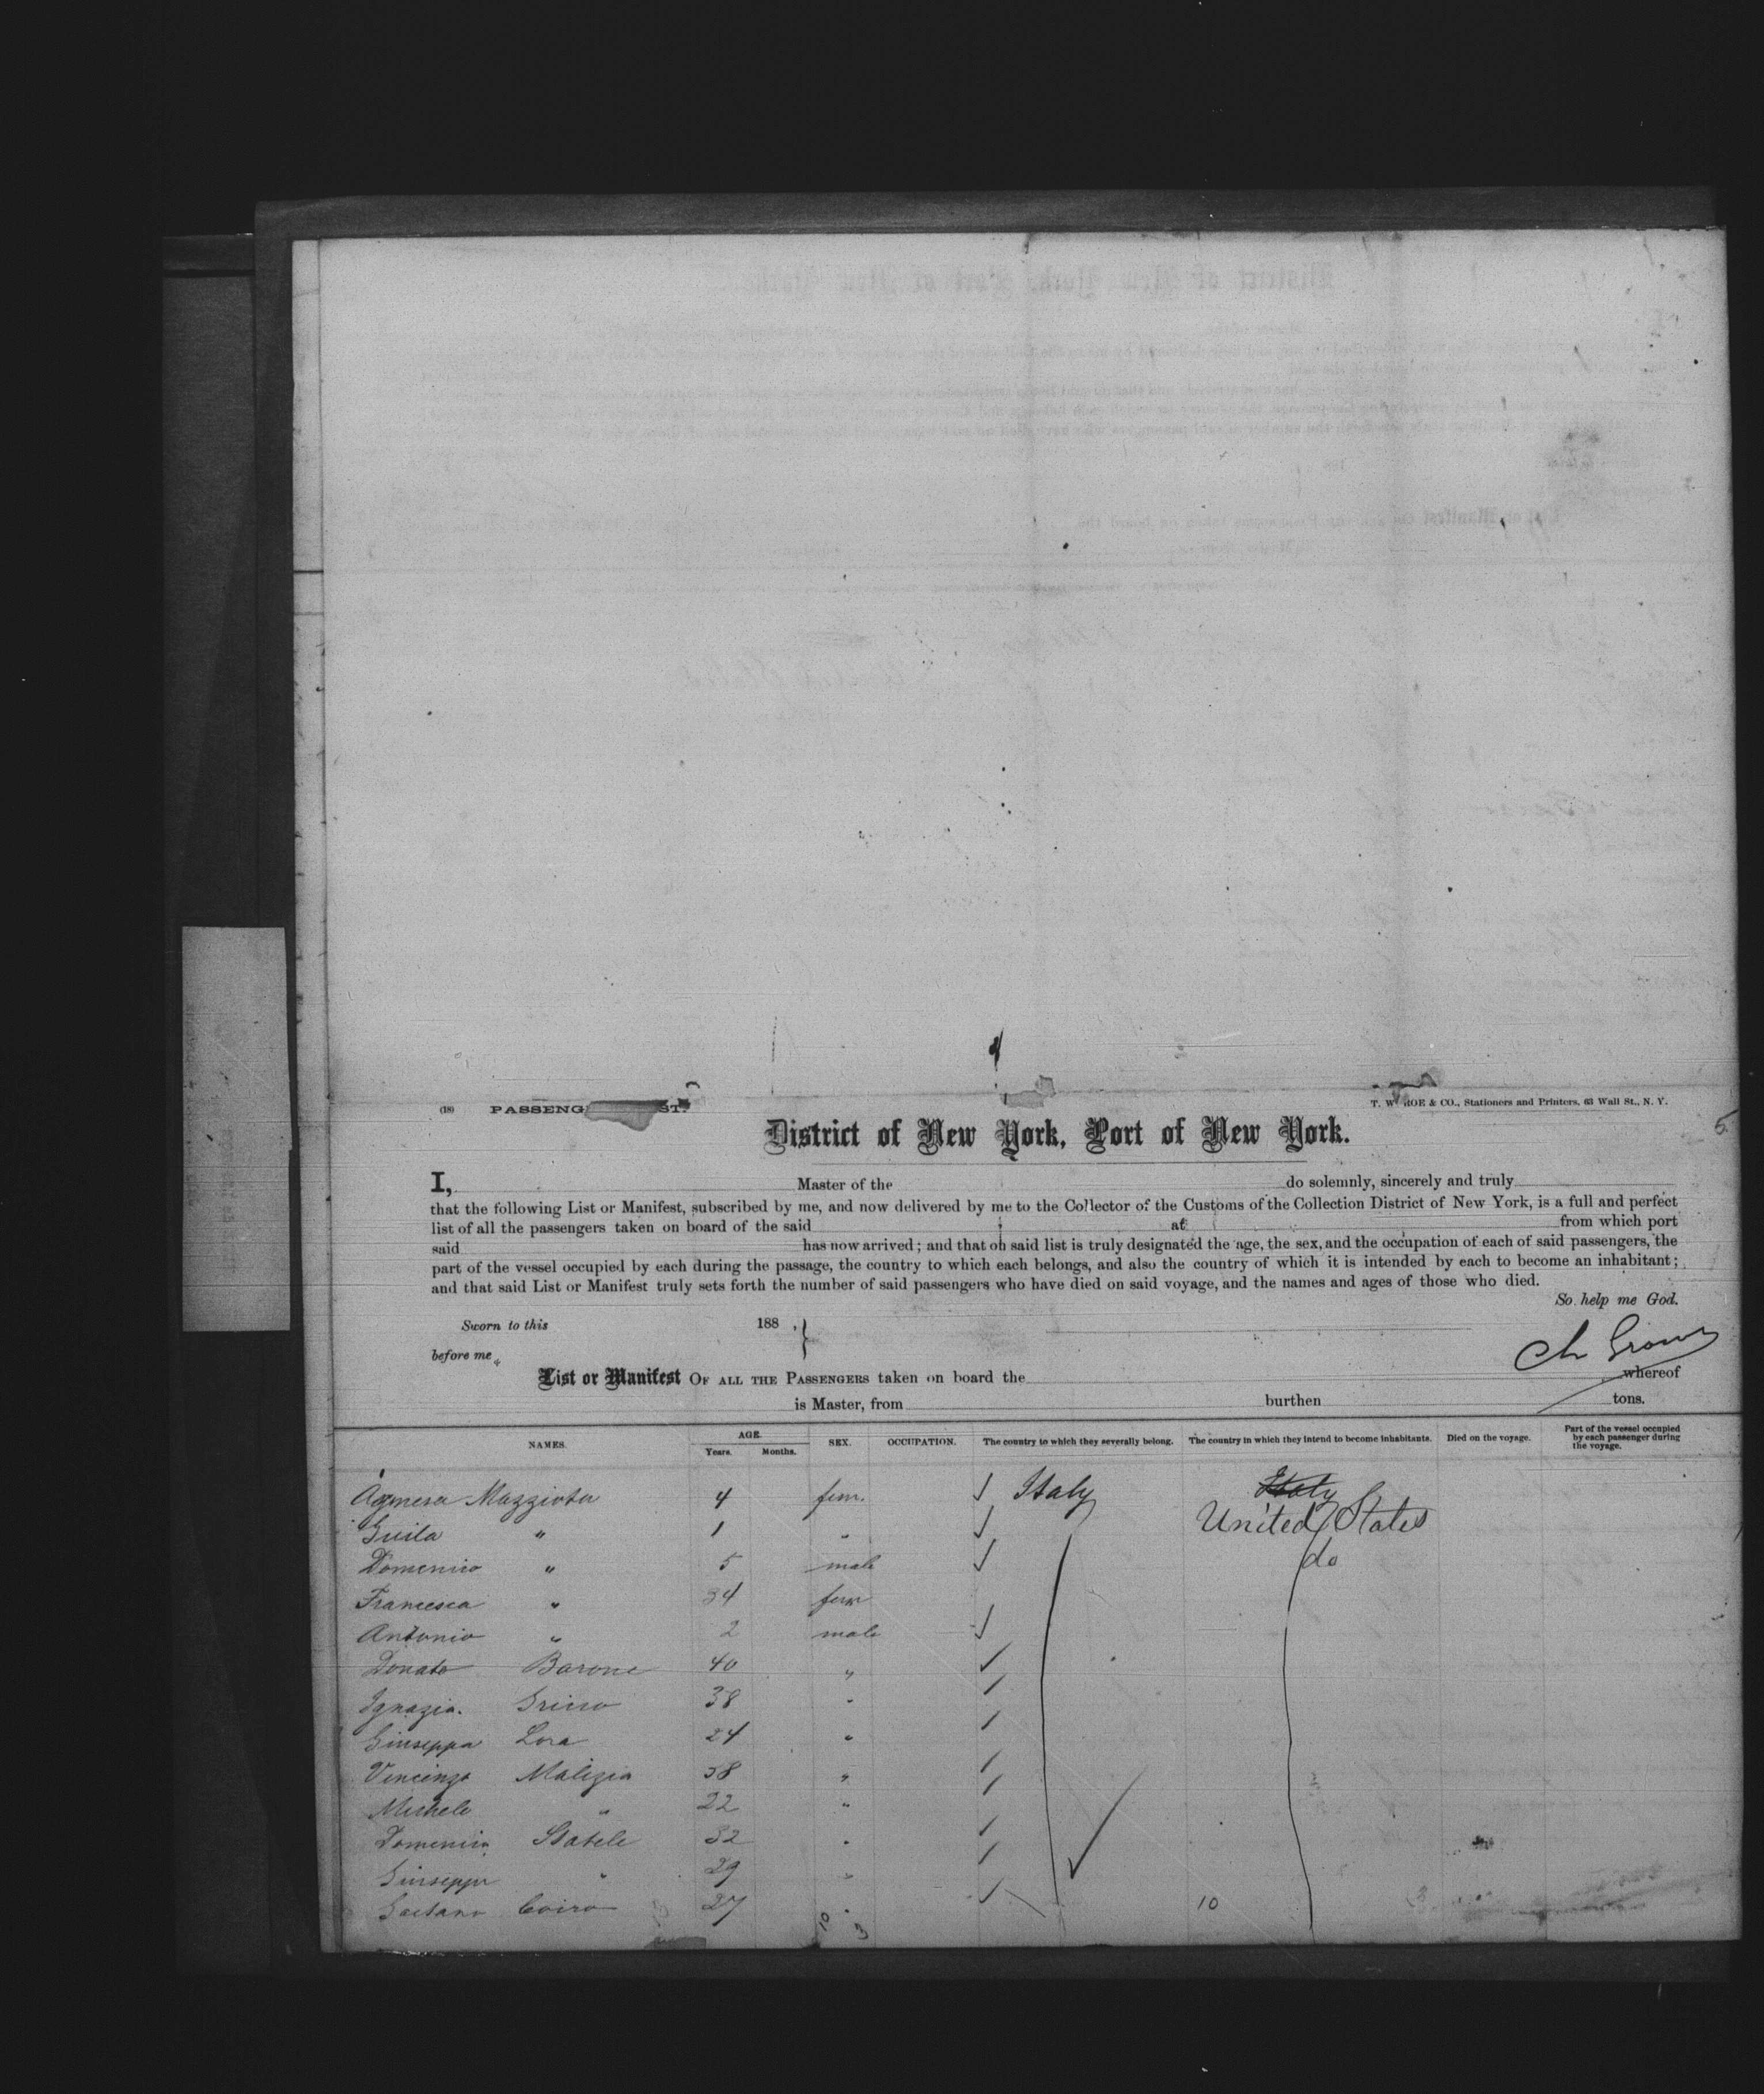 (18) PASSENG ST. T. W. ROE & CO., Stationers and Printers, 63 Wall St., N. Y.
District of New York, Port of New York.
I, Master of the do solemnly, sincerely and truly
that the following List or Manifest, subscribed by me, and now delivered by me to the Collector of the Customs of the Collection District of New York, is a full and perfect
list of all the passengers taken on board of the said at from which port
said has now arrived; and that on said list is truly designated the age, the sex, and the occupation of each of said passengers, the
part of the vessel occupied by each during the passage, the country to which each belongs, and also the country of which it is intended by each to become an inhabitant;
and that said List or Manifest truly sets forth the number of said passengers who have died on said voyage, and the names and ages of those who died.
So help me God.
Sworn to this 188 , }
before me
List or Manifest OF ALL THE PASSENGERS taken on board the whereof
is Master, from burthen tons.
NAMES. AGE. Years. Months. SEX. OCCUPATION. The country to which they severally belong. The country in which they intend to become inhabitants. Died on the voyage. Part of the vessel occupied by each passenger during the voyage.
Agnesa Mazziota 4 fem. Italy Italy
Guila " 1 " United States
Domenico " 5 male do
Francesca " 34 fem
Antonio " 2 male
Donato Barone 40 "
Ignazia. 38 "
Giuseppa Lora 24 "
Vincenzo Malizia 38 "
Michele " 22 "
Domenico Stabele 32 "
Giuseppe " 29 "
Gaetano Coiro 27 " 10
10 3